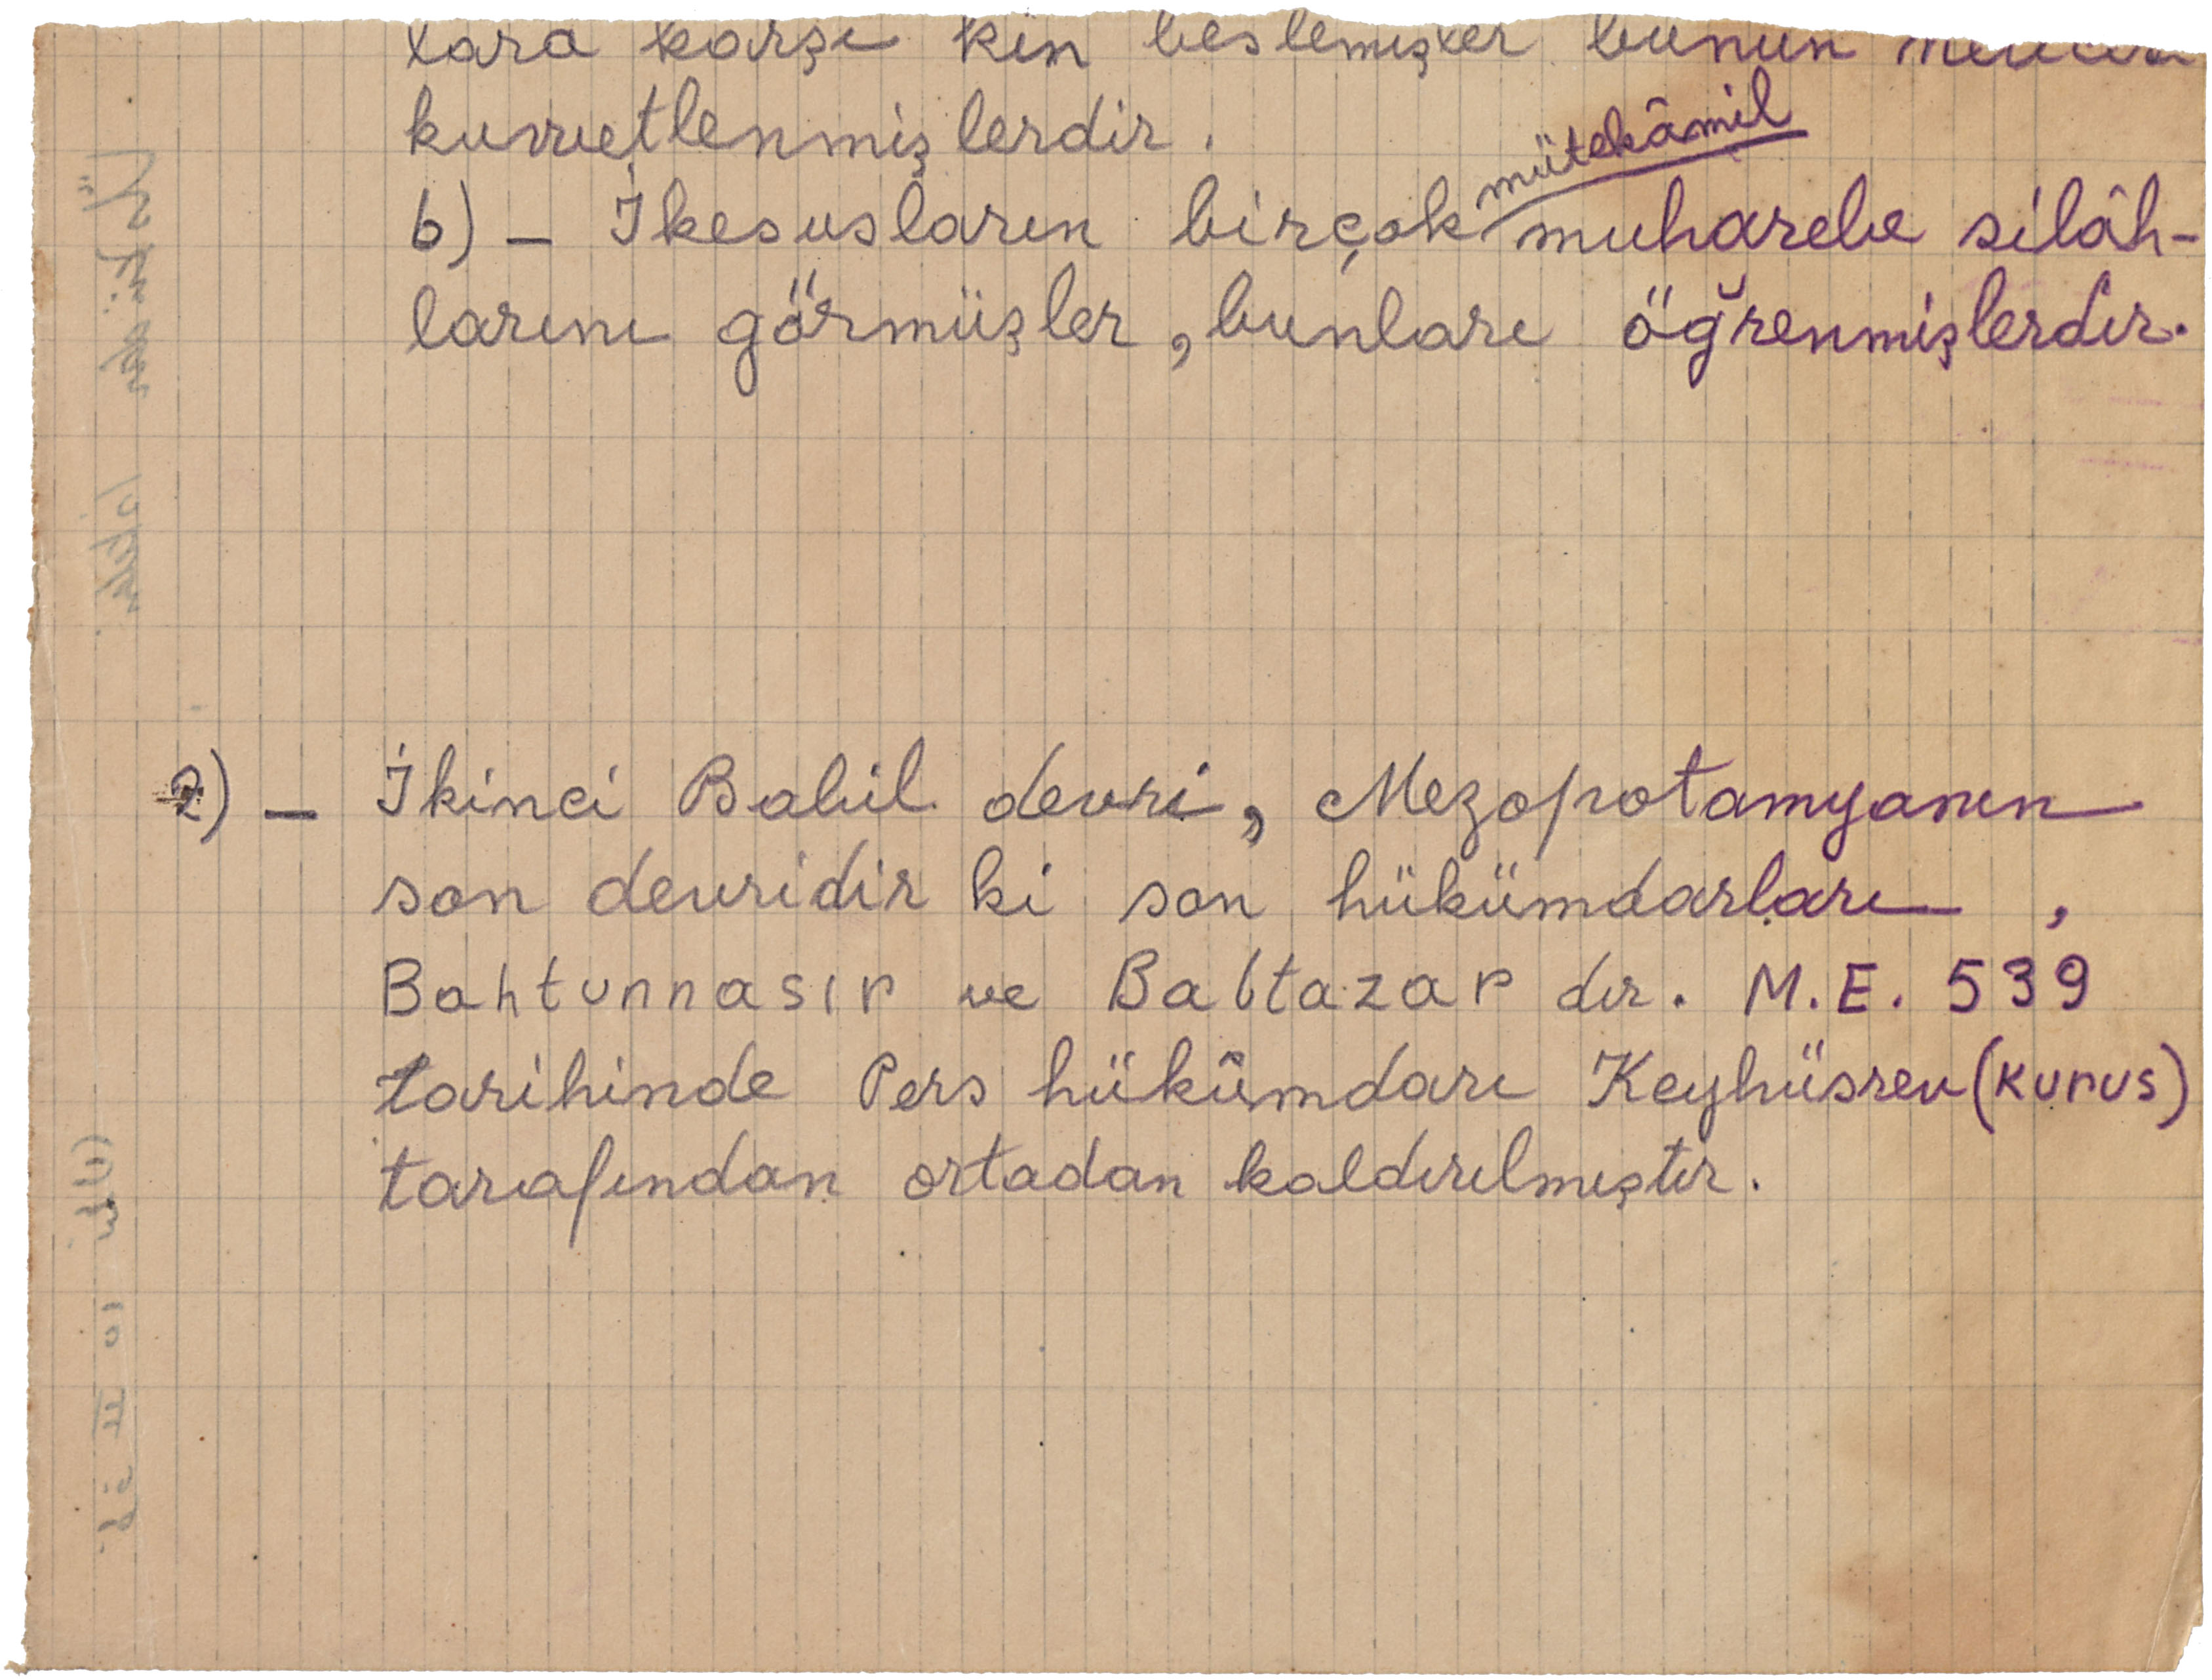 lara karşı kin beslemişler bunun
kuvvetlenmişlerdir.
mütekâmil
b) - İkesusların birçok muharebe silâh-
larını görmüşler, bunları öğrenmişlerdir.
2) - İkinci Babil devri, Mezopotamyanın
son devridir ki son hükümdarları,
Bahtunnasır ve Baltazar dır. M.E. 539
tarihinde Pers hükûmdarı Keyhüsrev (Kurus)
tarafından ortadan kaldırılmıştır.